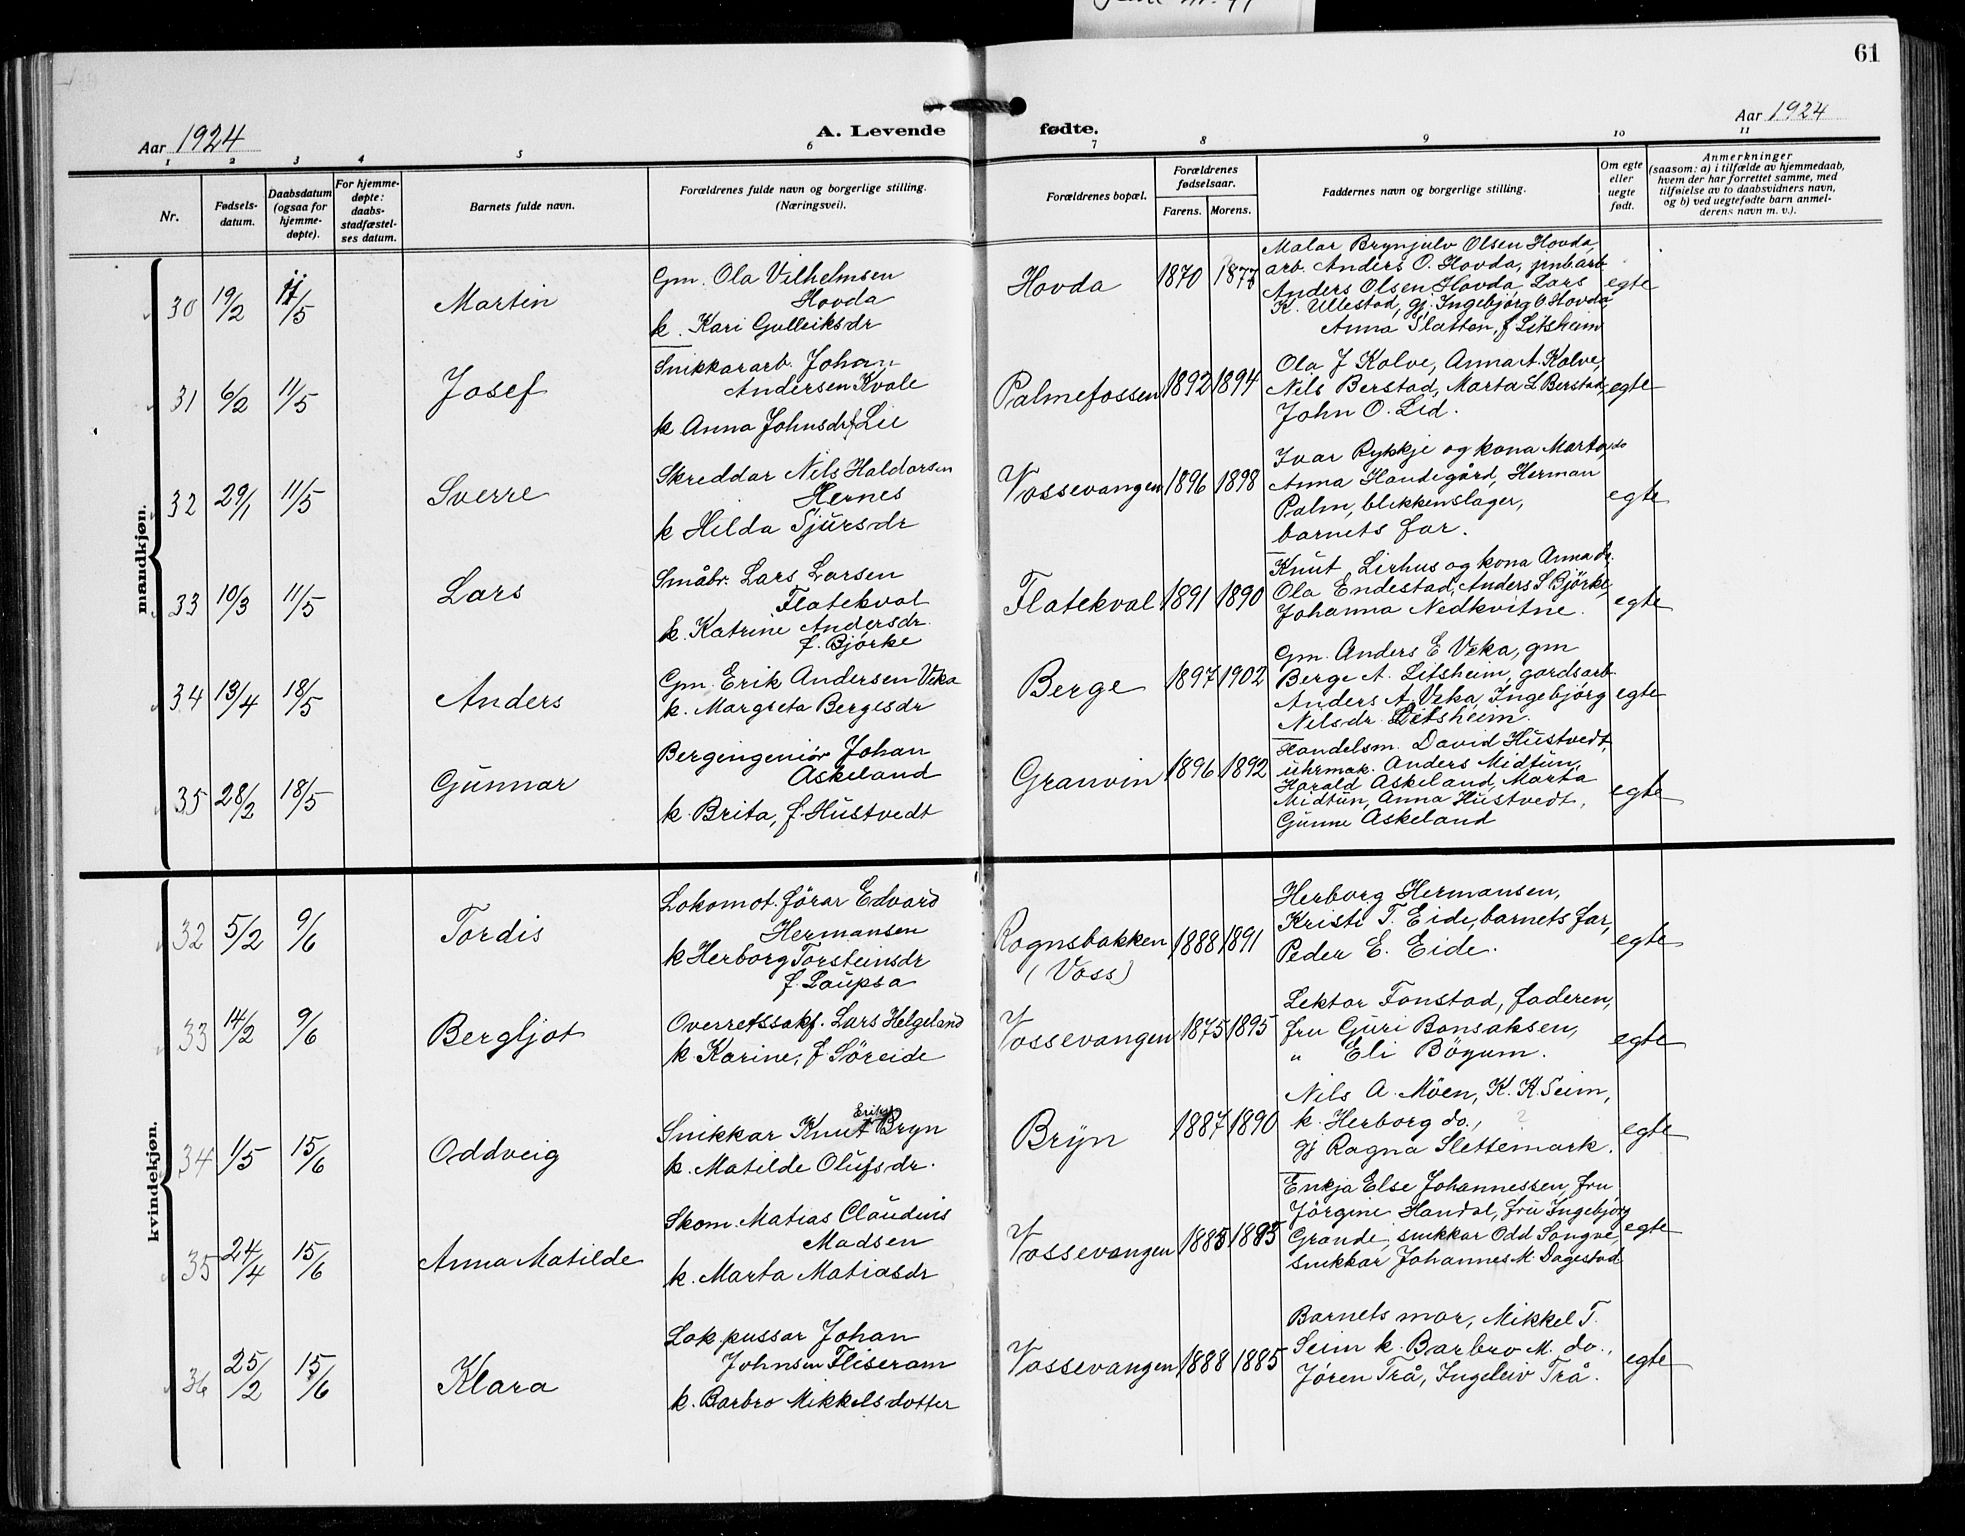 61
Aar 1924
A. Levende
fødte.
Aar 1924
1 2 3 4 5 6 7 8 9 10 11
Nr.
Fødsels-
datum.
Daabsdatum
(ogsaa for
hjemme-
døpte).
For hjemme-
døpte:
daabs-
stadfæstel-
ses datum.
Barnets fulde navn.
Forældrenes fulde navn og borgerlige stilling.
(Næringsvei).
Forældrenes bopæl.
Forældrenes
fødselsaar.
Farens. Morens.
Faddernes navn og borgerlige stilling.
Om egte
eller
uegte
født.
Anmerkninger
(saasom: a) i tilfælde av hjemmedaab,
hvem der har forrettet samme, med
tilføielse av to daabsvidners navn,
og b) ved uegtefødte barn anmel-
derens navn m. v.).
mandkjøn.
30 19/2 11/5 Martin
Gm. Ola Vilhelmsen
Hovda
k. Kari Gulleiksdr
Hovda 1870 1877
Malar Brynjulv Olsen Hovda,
arb. Anders O. Hovda, jnb.arb
Anders Olsen Hovda, Lars
K. Ullestad, gj. Ingebjørg O Hovda,
Anna Slatten, f Litsheim
egte
31 6/2 11/5 Josef
Snikkararb. Johan
Andersen Kvale
k Anna Johnsdr f Lie
Palmefossen 1892 1894
Ola J Kolve, Anna A. Kolve,
Nils Berstad, Marta L Berstad,
John O. Lid.
egte
32 29/1 11/5 Sverre
Skreddar Nils Haldorsen
Hernes
k Hilda Sjursdr
Vossevangen 1896 1898
Ivar Rykkje og kona Marta do
Anna Handegård, Herman
Palm, blikkenslager,
barnets far.
egte
33 10/3 11/5 Lars
Småbr. Lars Larsen
Flatekval
k. Katrine Andersdr.
f. Bjørke
Flatekval 1891 1890
Knut Lirhus og kona Anna do.
Ola Endestad, Anders S Bjørke,
Johanna Nedkvitne.
egte
34 13/4 18/5 Anders
Gm. Erik Andersen Veka
k. Margreta Bergesdr
Berge 1897 1902
Gm. Anders E Veka, gm
Berge A. Litsheim, gardsarb.
Anders A. Veka, Ingebjørg
Nilsdr. Litsheim.
egte
35 28/2 18/5 Gunnar
Bergingeniør Johan
Askeland
k. Brita, f. Hustvedt
Granvin 1896 1892
Handelsm. David Hustvedt,
uhrmak. Anders Midtun,
Harald Askeland, Marta
Midtun, Anna Hustvedt,
Gunne Askeland
egte
kvindekjøn.
32 5/2 9/6 Tordis
Lokomot. førar Edvard
Hermansen
k Herborg Torsteinsdr
f. Laupsa
Rognsbakken
(Voss)
1888 1891
Herborg Hermansen,
Kristi T. Eide, barnets far,
Peder E. Eide.
egte
33 14/2 9/6 Bergljot
Overretssakf. Lars Helgeland
k Karine, f Søreide
Vossevangen 1875 1895
Lektor Fonstad, faderen,
fru Guri Bonsaksen,
" Eli Bøyum.
egte
34 1/5 15/6 Oddveig
Snikkar Knut Bryn
k. Matilde Olufsdr.
Bryn 1887 1890
Nils A. Møen, K. K. Seim,
k. Herborg do.,
gj Ragna Slettemark.
egte
35 24/4 15/6 Anna Matilde
Skom. Matias Claudius
Madsen
k. Marta Matiasdr
Vossevangen
Enkja Else Johannessen, fru
Jørgine Handal, fru Ingebjørg
Grande, snikkar Odd Songve,
snikkar Johannes M. Dagestad
egte
36 25/2 15/6 Klara
Lok. pussar Johan
Johnsen Fliseram
k. Barbro Mikkelsdotter
Vossevangen 1888 1885
Barnets mor, Mikkel T.
Seim k. Barbro M. do.,
Jøren Trå, Ingeleiv Trå.
egte